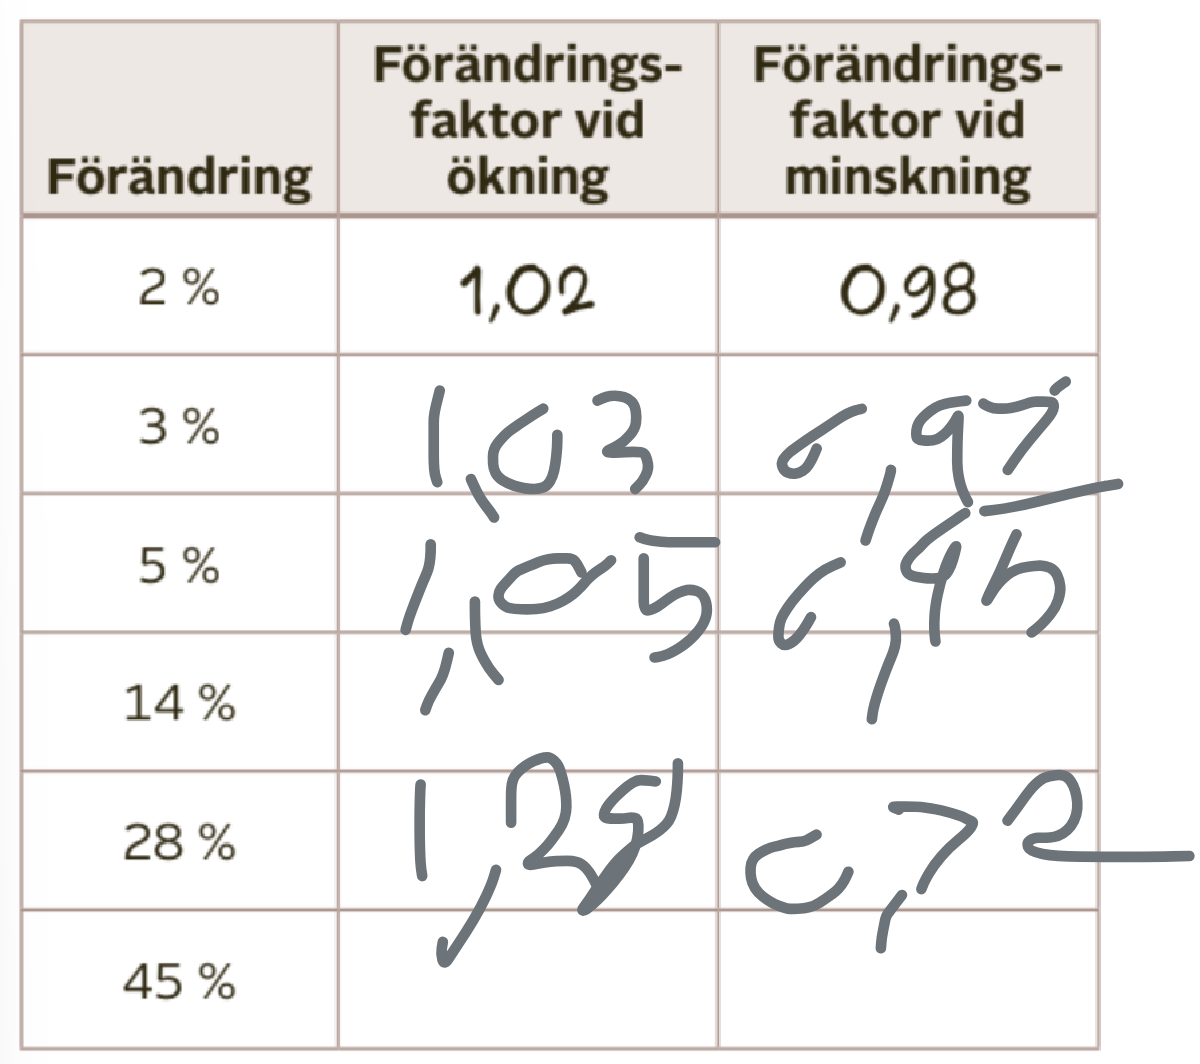 Förändring Förändrings-faktor vid ökning Förändrings-faktor vid minskning
2 % 1,02 0,98
3 % 1,03 0,97
5 % 1,05 0,95
14 %
28 % 1,28 0,72
45 %